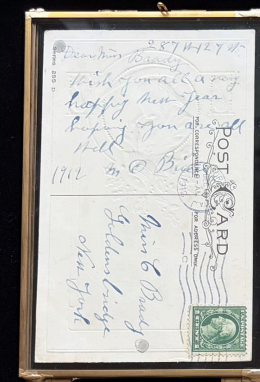 Series 255 D
Dear Miss Brady
Wish you all a very
happy New Year
hoping you are all
well
1912
POST CARD
FOR CORRESPONDENCE
FOR ADDRESS ONLY
Miss C Brady
Goldens bridge
New York